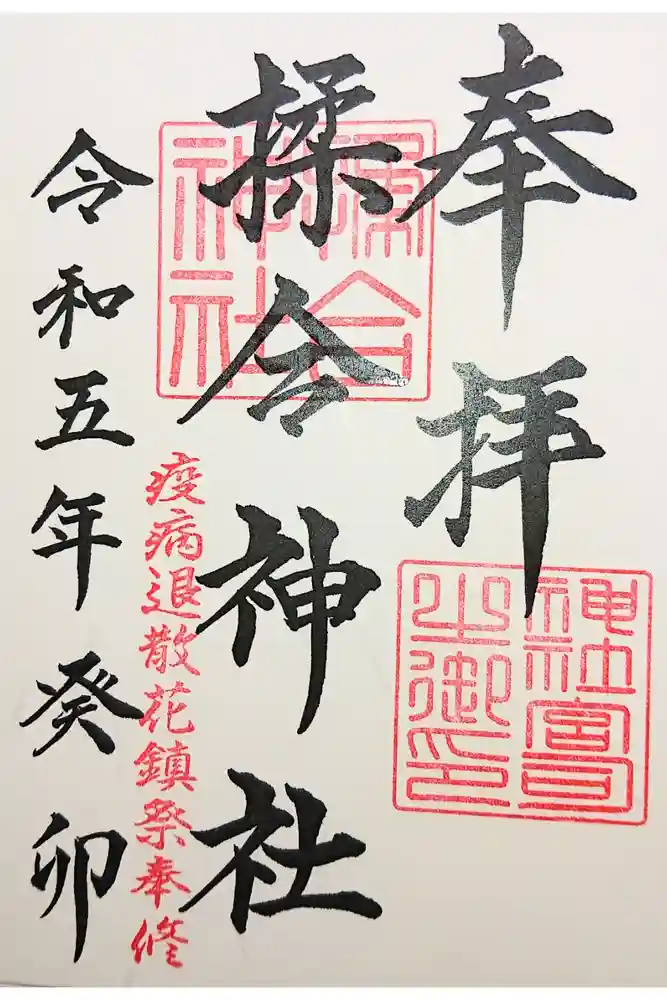 奉拝
神社宮司之御印
揉合神社
揉合神社
疫病退散花鎮祭奉修
令和五年癸卯